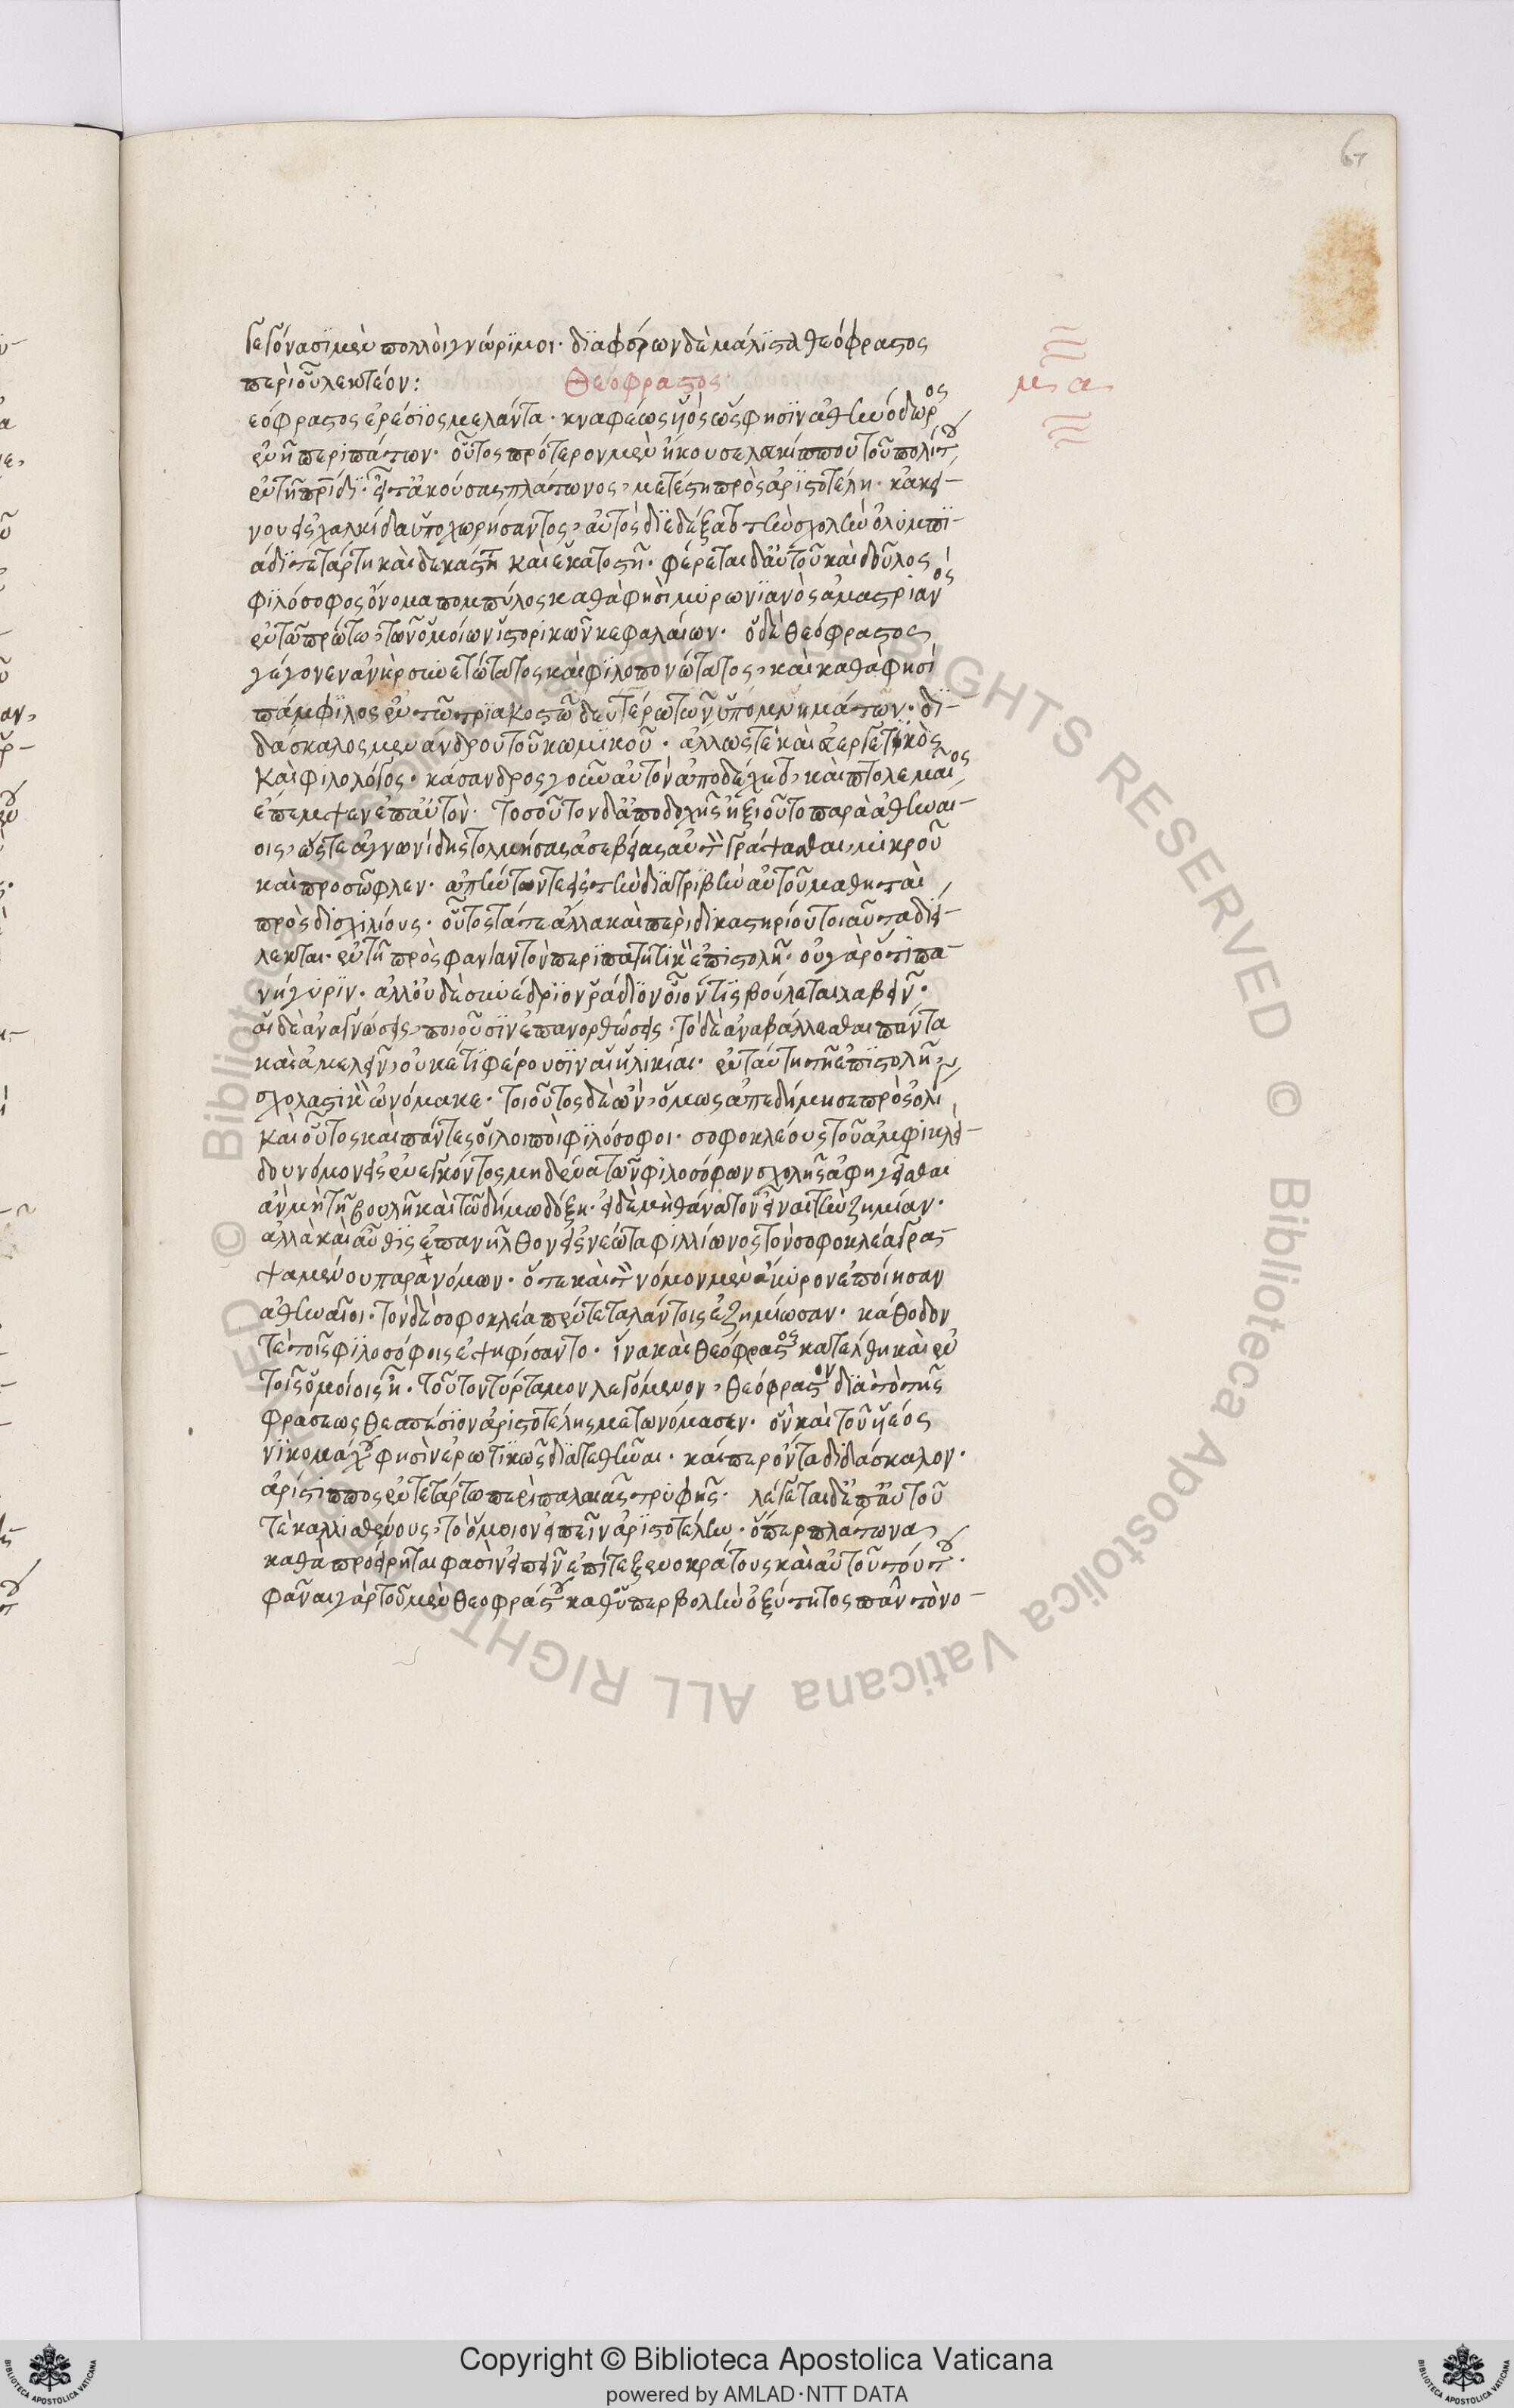 6
γεγόνασι μὲν πολλοὶ γνώριμοι· διαφέρων δὲ μάλιστα θεόφραστος
περὶ οὗ λεκτέον:
Θεόφραστος
μα
εόφραστος ἐρέσιος μελάντα· κναφέως υἱὸς ὥς φησιν ἀθηνόδωρος
ἐν ηˉ περιπάτων· οὗτος πρότερον μὲν ἤκουσε λευκίππου τοῦ πολίτου
ἐν τῆ πρίδι· εἶτ' ἀκούσας πλάτωνος, μετέστη πρὸς ἀριστοτέλη· κἀκεί-
νου εἰς χαλκίδα ὑποχωρήσαντος, αὐτὸς διεδέξατο τὴν σχολὴν ὀλυμπι-
άδι τετάρτη καὶ δεκάτη καὶ ἑκατοστῆ· φέρεται δ' αὐτοῦ καὶ δοῦλος
φιλόσοφος ὄνομα πομπύλος καθά φησι μυρωνιανὸς ἀμαστριανός
ἐν τῶ πρώτω τῶν ὁμοίων ἱστορικῶν κεφαλαίων· ὁ δὲ θεόφραστος
γέγονεν ἀνὴρ συνετώτατος καὶ φιλοπονώτατος, καὶ καθά φησι
πάμφιλος ἐν τῶ τριακοστῶ δευτέρω τῶν ὑπομνημάτων· δι-
δάσκαλος μενάνδρου τοῦ κωμικοῦ· ἄλλως τε καὶ εὐεργετικὸς
καὶ φιλολόγος· κάσανδρος γοῦν αὐτὸν ἀποδέχετο, καὶ πτολεμαῖος
ἔπεμψεν ἐπ' αὐτὸν· τοσοῦτον δ' ἀποδοχῆς ἠξιοῦτο παρὰ ἀθηναί-
οις, ὥστε ἀγνωνίδης τολμήσας ἀσεβείας αὐτὸν γράψασθαι, μικροῦ
καὶ προσῶφλεν· ἀπήντων τε εἰς τὴν διατριβὴν αὐτοῦ μαθηταὶ
πρὸς δισχιλίους· οὗτος τά τε ἄλλα καὶ περὶ δικαστηρίου τοιαῦτα διεί-
λεκται· ἐν τῆ πρὸς φανίαν τὸν περιπατητικὸν ἐπιστολῆ· οὐ γὰρ ὅτι πα-
νήγυριν· ἀλλ' οὐδὲ συνέδριον ῥάδιον οἷόν τις βούλεται λαβεῖν·
αἱ δὲ ἀναγνώσεις, ποιοῦσιν ἐπανορθώσεις· τὸ δὲ ἀναβάλλεσθαι πάντα
καὶ ἀμελεῖν, οὐκέτι φέρουσιν αἱ ἡλικίαι· ἐν ταύτη τῆ ἐπιστολῆ
σχολαστικὸν ὠνόμακε· τοιοῦτος δὲ ὤν, ὅμως ἀπεδήμησε πρὸς ὀλίγον
καὶ οὗτος καὶ πάντες οἱ λοιποὶ φιλόσοφοι· σοφοκλέους τοῦ ἀμφικλεί-
δου νόμον εἰσενεγκόντος μηδένα τῶν φιλοσόφων σχολῆς ἀφηγεῖσθαι
ἂν μὴ τῆ βουλῆ καὶ τῶ δήμω δόξη· εἰ δὲ μὴ θάνατον εἶναι τὴν ζημίαν·
ἀλλὰ καὶ αὖθις ἐπανῆλθον εἰς νέωτα φιλλίωνος τὸν σοφοκλέα γρα-
ψαμένου παρανόμων· ὅτε καὶ τὸν νόμον μὲν ἄκυρον ἐποίησαν
ἀθηναῖοι· τὸν δὲ σοφοκλέα πέντε ταλάντοις ἐζημίωσαν· κάθοδόν
τε τοῖς φιλοσόφοις ἐψηφίσαντο· ἵνα καὶ θεόφραστος κατέλθη καὶ ἐν
τοῖς ὁμοίοις ἦ· τοῦτον τύρταμον λεγόμενον, θεόφραστον διὰ τὸ τῆς
φράσεως θεσπέσιον ἀριστοτέλης μετωνόμασεν· οὗ καὶ τοῦ υἱέος
νικομάχου φησὶν ἐρωτικῶς διατεθῆναι· καίπερ ὄντα διδάσκαλον·
ἀρίστιππος ἐν τετάρτω περὶ παλαιᾶς τρυφῆς· λέγεται δ' ἐπ' αὐτοῦ
τε καλλισθένους, τὸ ὅμοιον εἰπεῖν ἀριστοτέλην· ὅπερ πλάτωνα,
καθὰ προείρηται φασὶν εἰπεῖν ἐπί τε ξενοκράτους καὶ αὐτοῦ τούτου·
φᾶναι γὰρ τοῦ μὲν θεοφράστου καθ' ὑπερβολὴν ὀξύτητος πᾶν τὸ νο-
Copyright © Biblioteca Apostolica Vaticana
powered by AMLAD·NTT DATA